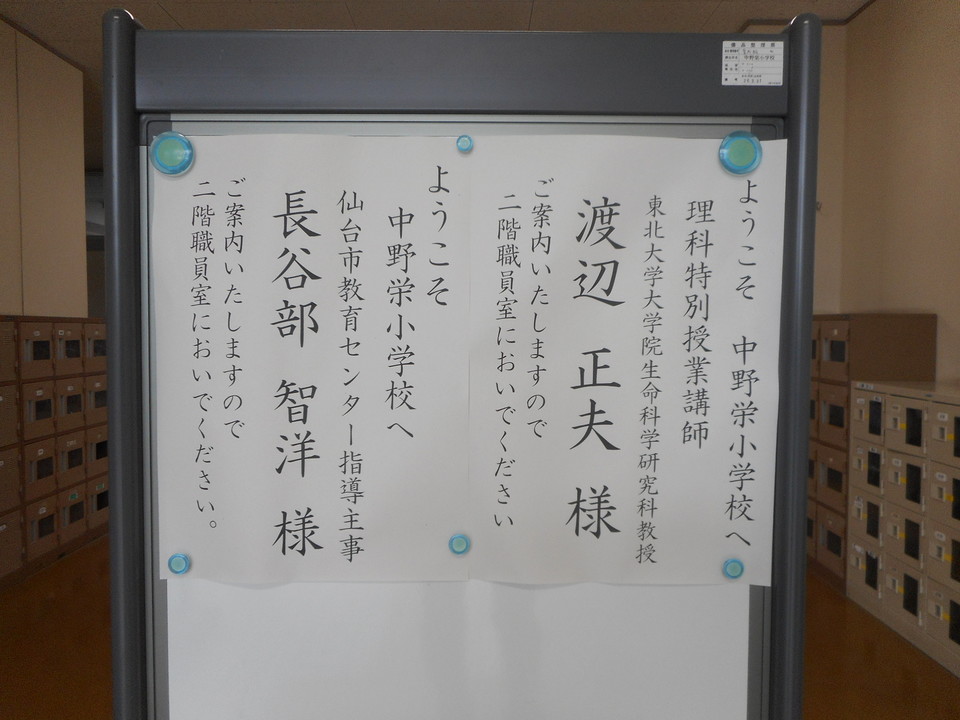 ようこそ 中野栄小学校へ
理科特別授業講師
東北大学大学院生命科学研究科教授
渡辺 正夫 様
ご案内いたしますので
二階職員室においでください
ようこそ
中野栄小学校へ
仙台市教育センター指導主事
長谷部 智洋 様
ご案内いたしますので
二階職員室においでください。
中野栄小学校